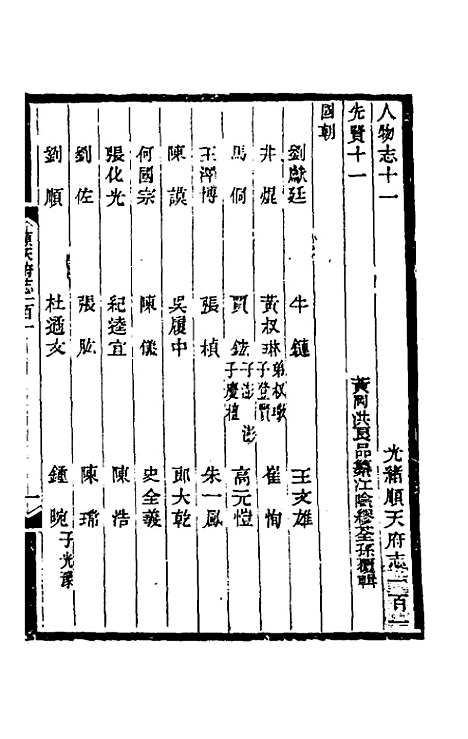 人物志十一　光緒順天府志一百一
先賢十一　黃岡洪良品纂江陰繆荃孫覆輯
國朝
劉獻廷　牛鏈　王文雄
井焜　黃叔琳弟叔璥子登賢　崔恂
馬侗　賈鉉子澎澎子慶檀　高元愷
王澤博　張楨　朱一鳳
陳謨　吳履中　郎大乾
何國宗　陳儀　史全義
張化光　紀逵宜　陳浩
劉佐　張肱　陳瑞
劉順　杜遹文　鍾晼子光豫
順天府志一百一